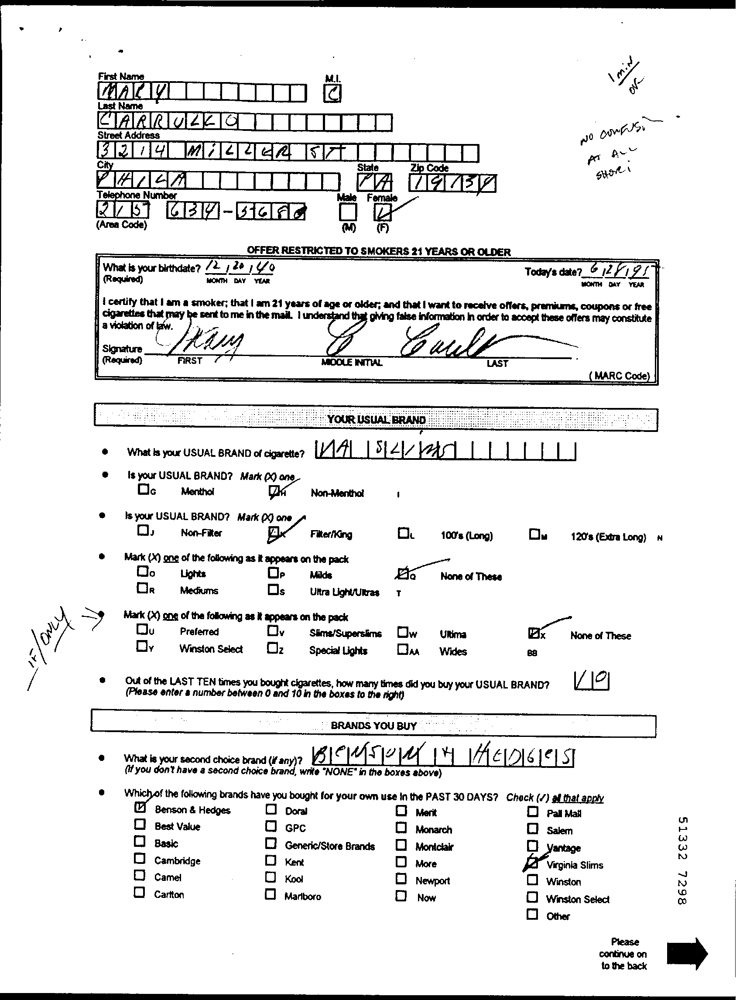 1 min
OK
First Name M.I.
MARY C
Last Name
CARRULLO
NO CONFUSI
AT ALL
SHORT
Street Address
3214 MILLER ST
City State Zip Code
PHILA PA 19134
Telephone Number Male Female
215 634-3688
(Area Code) (M) (F)
OFFER RESTRICTED TO SMOKERS 21 YEARS OR OLDER
What is your birthdate? 12 / 20 / 40 Today's date? 6 / 28 / 95
(Required) MONTH DAY YEAR MONTH DAY YEAR
I certify that I am a smoker; that I am 21 years of age or older; and that I want to receive offers, premiums, coupons or free
cigarettes that may be sent to me in the mail. I understand that giving false information in order to accept these offers may constitute
a violation of law.
Signature Mary C
(Required) FIRST MIDDLE INITIAL LAST
( MARC Code)
YOUR USUAL BRAND
• What is your USUAL BRAND of cigarette? VA SLIMS
• Is your USUAL BRAND? Mark (X) one
G Menthol H Non-Menthol I
• Is your USUAL BRAND? Mark (X) one
J Non-Filter K Filter/King L 100's (Long) M 120's (Extra Long) N
• Mark (X) one of the following as it appears on the pack
O Lights P Milds Q None of These
R Mediums S Ultra Light/Ultras T
IF/ONLY
• Mark (X) one of the following as it appears on the pack
U Preferred V Slims/Superslims W Ultima X None of These
Y Winston Select Z Special Lights AA Wides BB
• Out of the LAST TEN times you bought cigarettes, how many times did you buy your USUAL BRAND? 10
(Please enter a number between 0 and 10 in the boxes to the right)
BRANDS YOU BUY
• What is your second choice brand (if any)? BENSON H HEDGES
(If you don't have a second choice brand, write "NONE" in the boxes above)
• Which of the following brands have you bought for your own use in the PAST 30 DAYS? Check (✓) all that apply
Benson & Hedges Doral Merit Pall Mall
Best Value GPC Monarch Salem
Basic Generic/Store Brands Montclair Vantage
Cambridge Kent More Virginia Slims
Camel Kool Newport Winston
Carlton Marlboro Now Winston Select
Other
51332 7298
Please
continue on
to the back